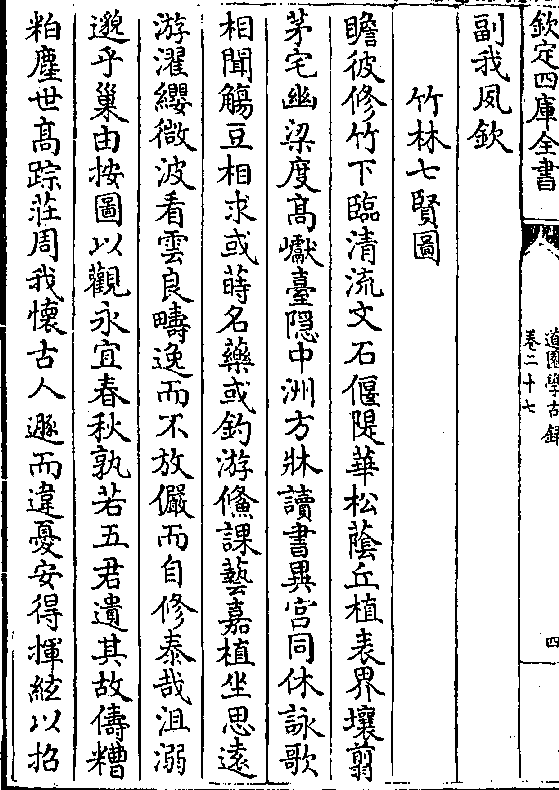 欽定四庫全書
道園學古錄
卷二十七
四
副我夙欽
竹林七賢圖
瞻彼修竹下臨清流文石偃隄華松蔭丘植表界壤翦
茅宅幽梁度高巘臺隱中洲方牀讀書異宫同休詠歌
相聞觴豆相求或蒔名藥或釣游鯈課藝嘉植坐思遠
游濯纓微波看雲良疇逸而不放儼而自修泰哉沮溺
邈乎巢由按圖以觀永宜春秋孰若五君遺其故儔糟
粕塵世高踪莊周我懷古人遯而違憂安得揮絃以招